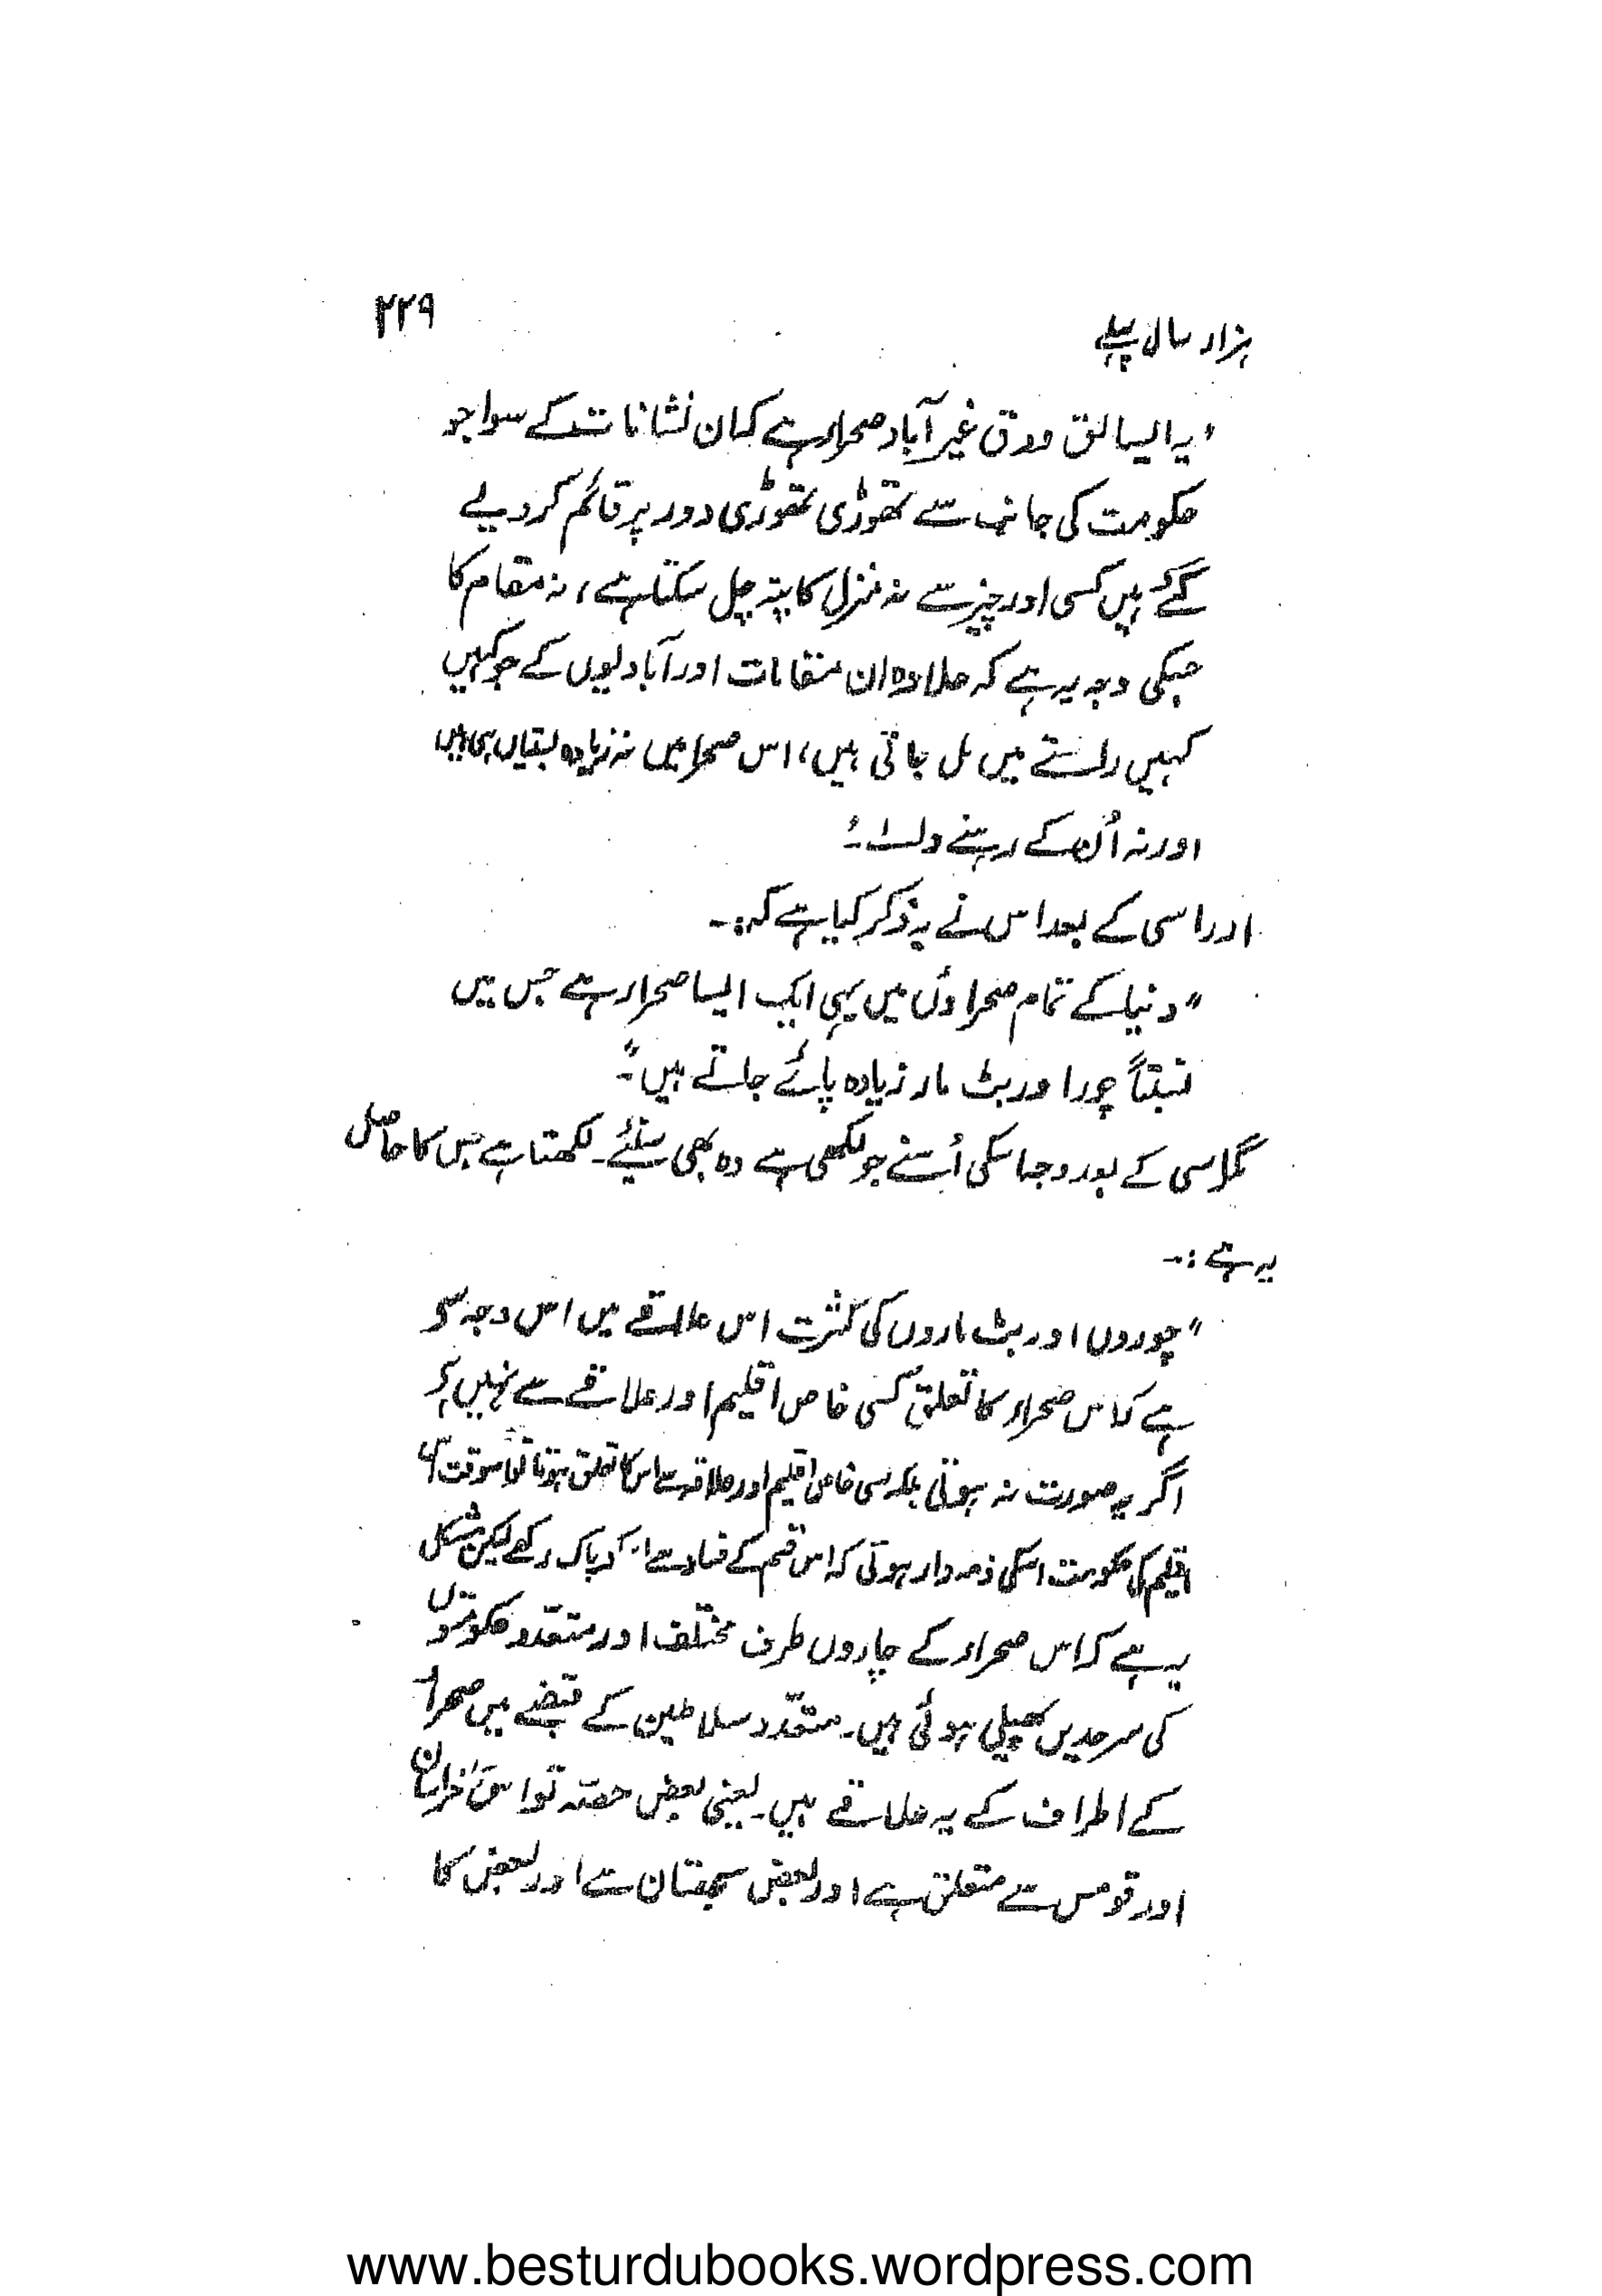 ہزار سال پہلے
۲۲۹
"یہ ایسا لق و دق غیر آباد صحراء ہے کہ ان نشانات کے سوا جو
حکومت کی جانب سے تھوڑی تھوڑی دور پر قائم کر دیے
گئے ہیں کسی اور چیز سے نہ منزل کا پتہ چل سکتا ہے، نہ مقام کا
جسکی وجہ یہ ہے کہ علاوہ ان مقامات اور آبادیوں کے جو کہیں
کہیں راستے میں مل جاتی ہیں، اس صحرا میں نہ زیادہ بستیاں ہی ہیں
اور نہ اُن کے رہنے والے۔"
اور اسی کے بعد اس نے یہ ذکر کیا ہے کہ:۔
"دنیا کے تمام صحراؤں میں یہی ایک ایسا صحراء ہے جس میں
نسبتاً چور اور بٹ مار زیادہ پائے جاتے ہیں۔"
مگر اسی کے بعد وجہ اسکی اُسنے جو لکھی ہے وہ بھی سنئے۔ لکھتا ہے جس کا حاصل
یہ ہے :۔
"چوروں اور بٹ ماروں کی کثرت اس علاقے میں اس وجہ سے
ہے کہ اس صحراء کا تعلق کسی خاص اقلیم اور علاقے سے نہیں ہے
اگر یہ صورت نہ ہوتی بلکہ کسی خاص اقلیم اور علاقہ سے اس کا تعلق ہوتا تو اسوقت اس
اقلیم کی حکومت اسکی ذمہ دار ہوتی کہ اس قسم کے فساد سے اسکو پاک رکھے لیکن مشکل
یہ ہے کہ اس صحراء کے چاروں طرف مختلف اور متعدّد حکومتوں
کی سرحدیں پھیلی ہوئی ہیں۔ متعدّد سلاطین کے قبضے میں صحراء
کے اطراف کے یہ علاقے ہیں۔ یعنی بعض حصّہ تو اس کا خراسان
اور قومس سے متعلق ہے اور بعض سجستان سے اور بعض کا
www.besturdubooks.wordpress.com